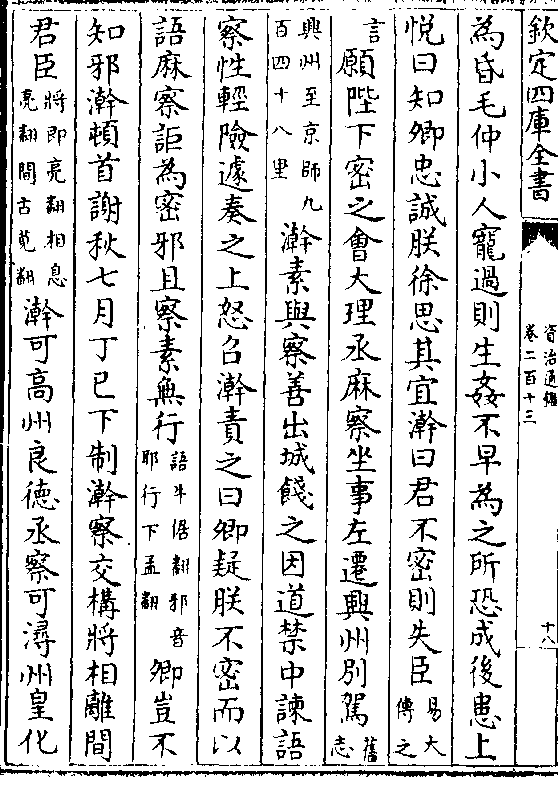 欽定四庫全書
資治通鑑
卷二百十三
十八
為昏毛仲小人寵過則生姦不早為之所恐成後患上
悅曰知卿忠誠朕徐思其宜澣曰君不密則失臣易大傳之
言願陛下密之會大理丞麻察坐事左遷興州別駕舊志
興州至京師九百四十八里澣素與察善出城餞之因道禁中諫語
察性輕險遽奏之上怒召澣責之曰卿疑朕不密而以
語麻察詎為密邪且察素無行語牛倨翻邪音耶行下孟翻卿豈不
知邪澣頓首謝秋七月丁巳下制澣察交構將相離間
君臣將即亮翻相息亮翻間古莧翻澣可高州良德丞察可潯州皇化